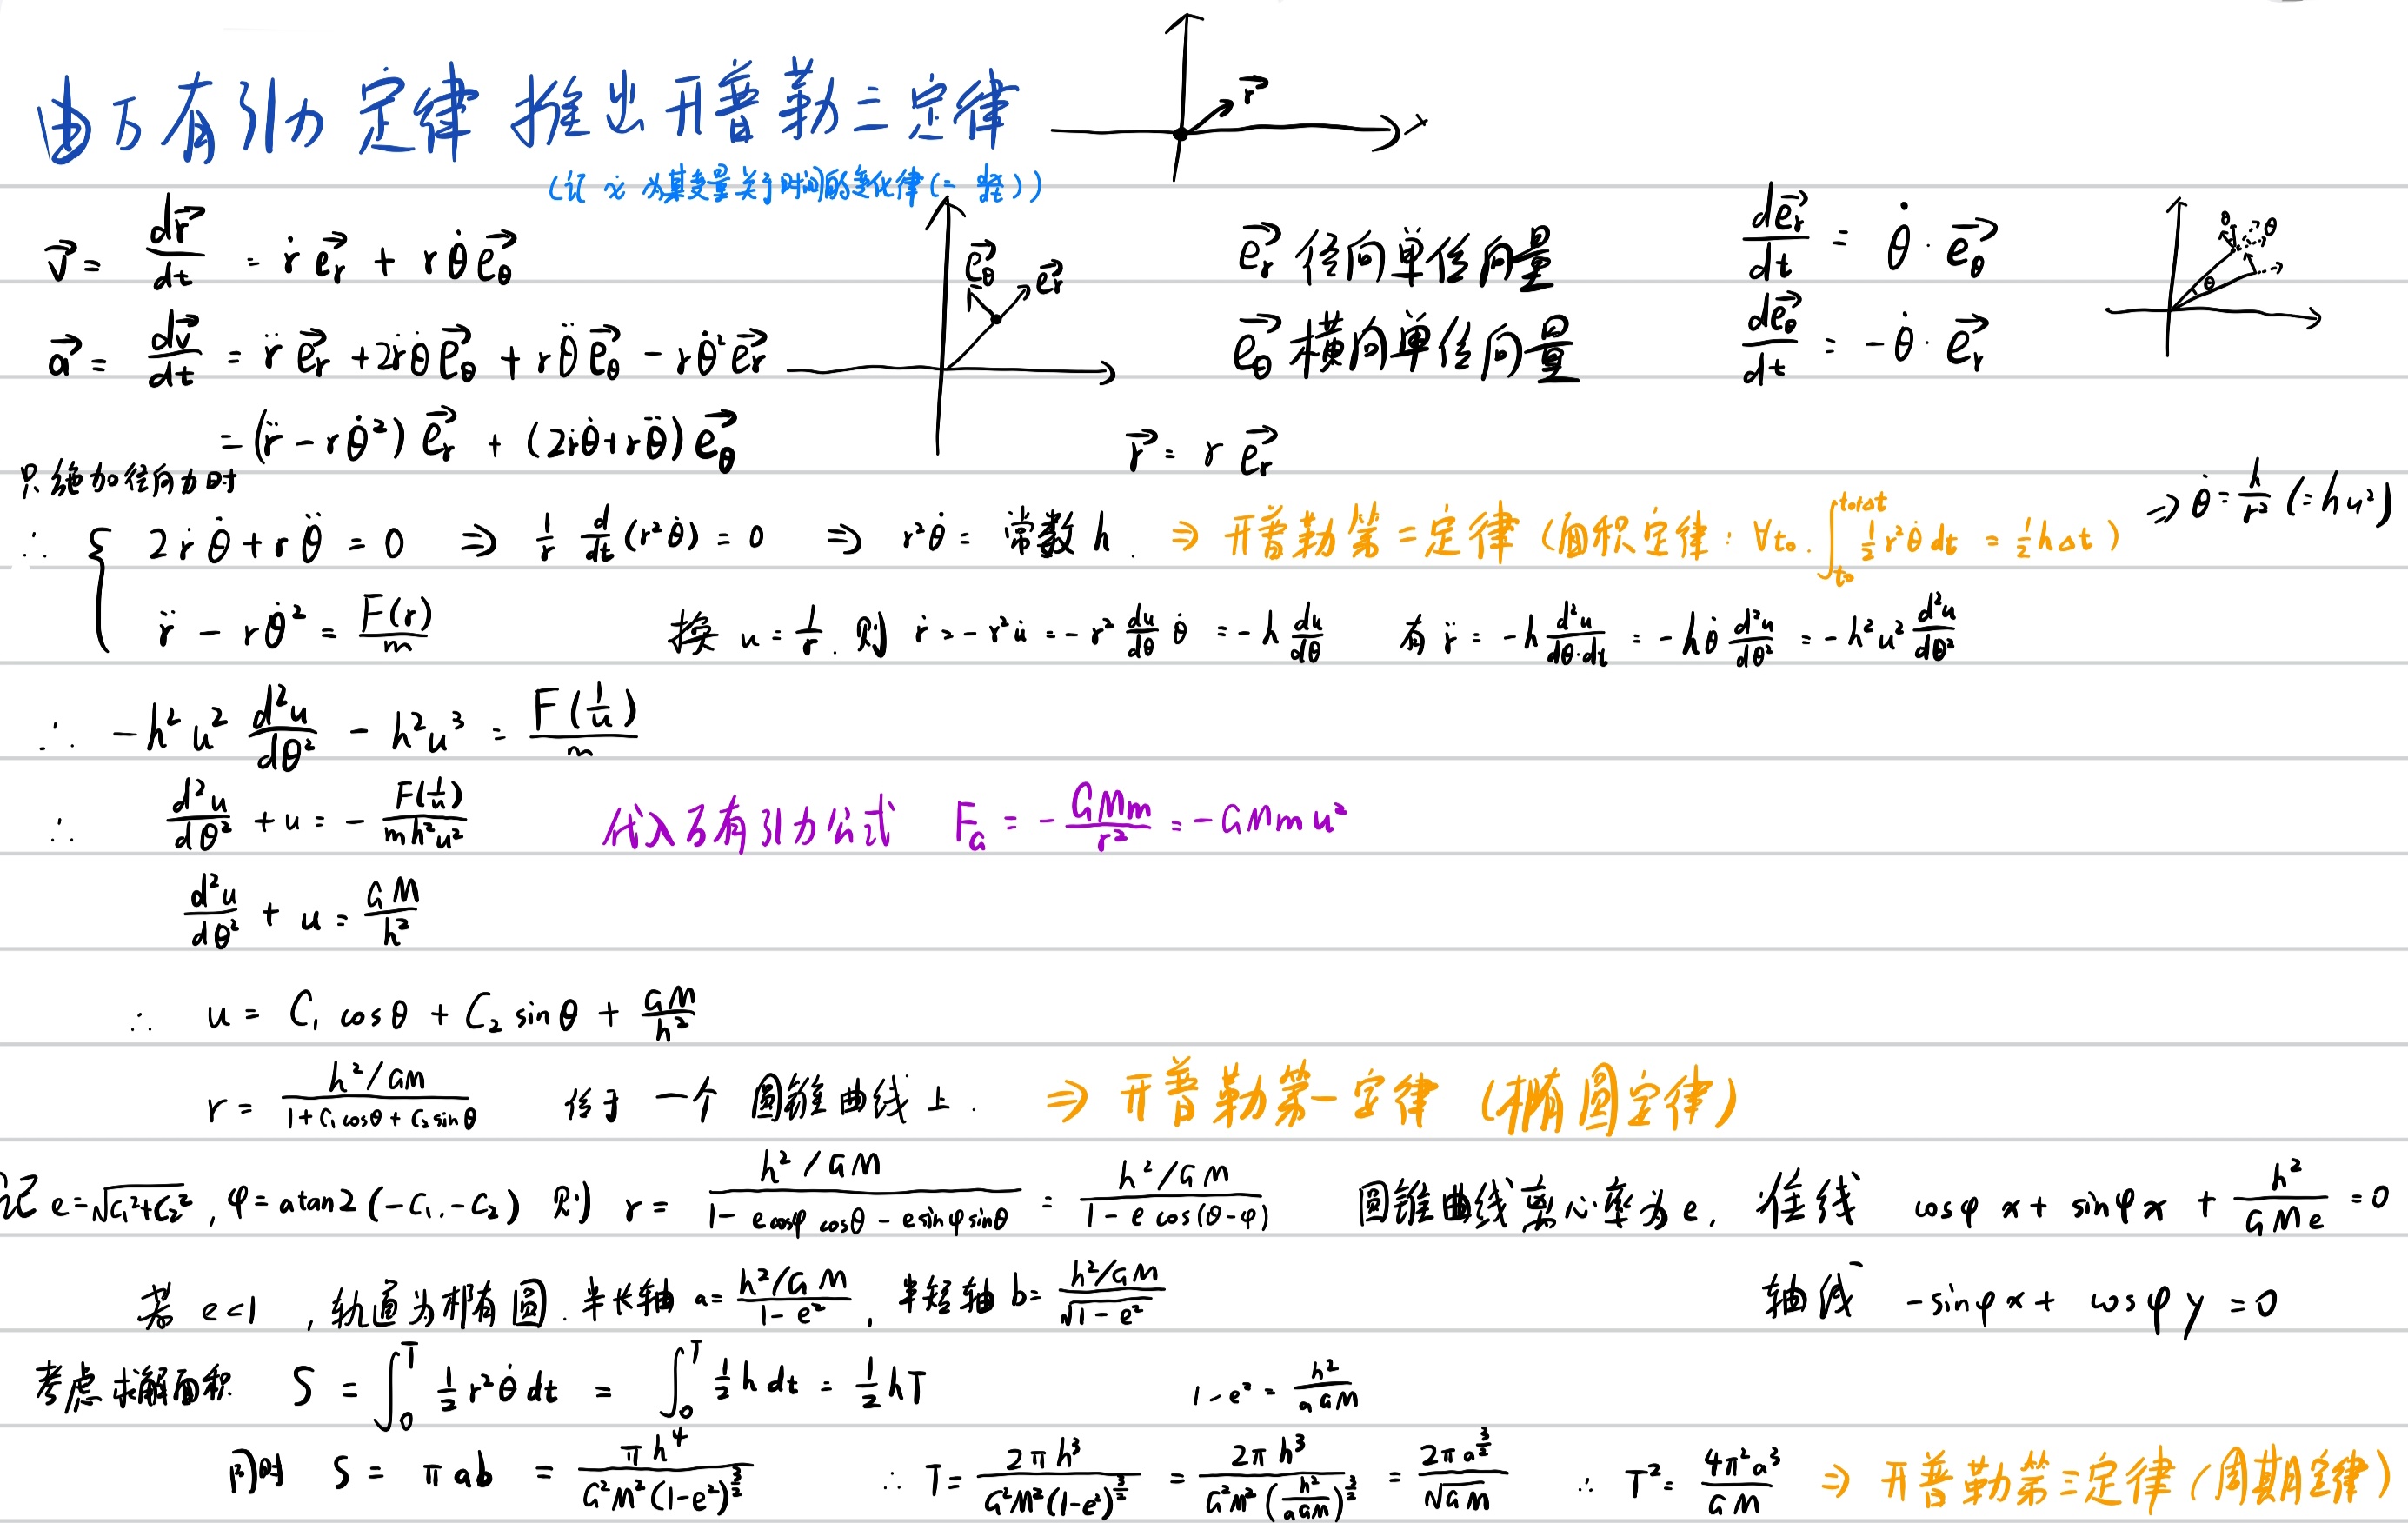 由万有引力定律 推出开普勒三定律
r⃗ x
(记 ẋ 为某变量关于时间的变化律(= dx/dt))
v⃗ = dr⃗/dt = ṙ e⃗_r + r θ̇ e⃗_θ
e⃗_θ e⃗_r
e⃗_r 径向单位向量 de⃗_r/dt = θ̇ · e⃗_θ
θ θ θ
a⃗ = dv⃗/dt = r̈ e⃗_r + 2ṙθ̇ e⃗_θ + rθ̈ e⃗_θ - rθ̇² e⃗_r
e⃗_θ 横向单位向量 de⃗_θ/dt = -θ̇ · e⃗_r
= (r̈ - rθ̇²) e⃗_r + (2ṙθ̇ + rθ̈) e⃗_θ r⃗ = r e⃗_r
只施加径向力时
∴ { 2ṙθ̇ + rθ̈ = 0 ⇒ 1/r d/dt (r²θ̇) = 0 ⇒ r²θ̇ = 常数 h. ⇒ 开普勒第二定律 (面积定律: ∀t₀. ∫_{t₀}^{t₀+Δt} ½ r²θ̇ dt = ½ hΔt) ⇒ θ̇ = h/r² (= hu²)
r̈ - rθ̇² = F(r)/m 换 u = 1/r. 则 ṙ = -r² u̇ = -r² du/dθ θ̇ = -h du/dθ 有 r̈ = -h d²u/dθ·dt = -hθ̇ d²u/dθ² = -h²u² d²u/dθ²
∴ -h²u² d²u/dθ² - h²u³ = F(1/u)/m
∴ d²u/dθ² + u = - F(1/u)/mh²u² 代入万有引力公式 F_G = - GMm/r² = -GMmu²
d²u/dθ² + u = GM/h²
∴ u = C₁ cosθ + C₂ sinθ + GM/h²
r = (h²/GM)/(1 + C₁cosθ + C₂sinθ) 位于 一个 圆锥曲线上. ⇒ 开普勒第一定律 (椭圆定律)
记 e = √(C₁²+C₂²), φ = atan2(-C₁, -C₂) 则 r = (h²/GM)/(1 - e cosφ cosθ - e sinφ sinθ) = (h²/GM)/(1 - e cos(θ-φ)) 圆锥曲线离心率为e, 准线 cosφ x + sinφ x + h²/GMe = 0
若 e<1, 轨道为椭圆. 半长轴 a = (h²/GM)/(1-e²), 半短轴 b = (h²/GM)/√(1-e²) 轴线 -sinφ x + cosφ y = 0
考虑求解面积 S = ∫₀^T ½ r²θ̇ dt = ∫₀^T ½ h dt = ½ hT 1-e² = h²/aGM
同时 S = πab = πh⁴/(G²M²(1-e²)^{3/2}) ∴ T = 2πh³/(G²M²(1-e²)^{3/2}) = 2πh³/(G²M²(h²/aGM)^{3/2}) = 2πa^{3/2}/√GM ∴ T² = 4π²a³/GM ⇒ 开普勒第三定律 (周期定律)